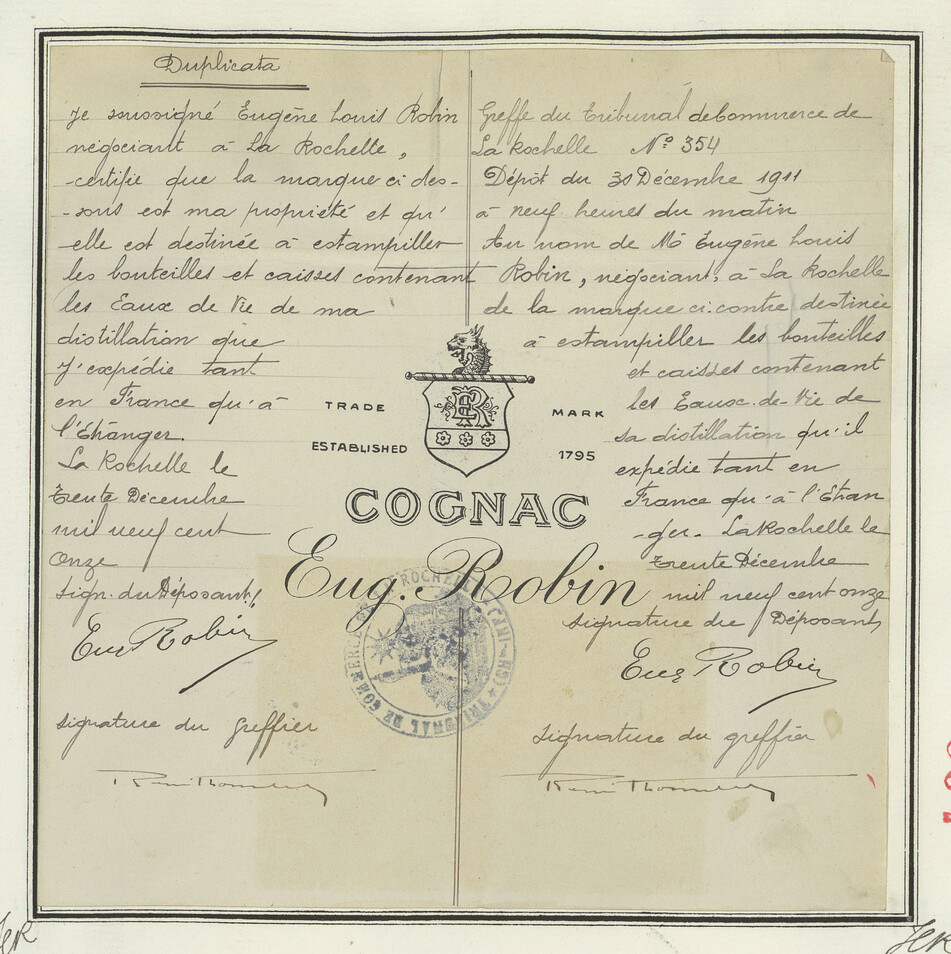 Duplicata
Je soussigné Eugène Louis Robin
négociant à La Rochelle,
certifie que la marque ci des-
-sous est ma propriété et qu'
elle est destinée à estampiller
les bouteilles et caisses contenant
les Eaux de Vie de ma
distillation que
J'expédie tant
en France qu'à
l'Etranger.
La Rochelle le
trente Décembre
mil neuf cent
Onze
Sign. du Déposant
Eug Robin
signature du greffier
Greffe du Tribunal de Commerce de
La Rochelle Nº 354
Dépôt du 30 Décembre 1911
à neuf heures du matin
Au nom de Mr Eugène Louis
Robin, négociant, à La Rochelle
de la marque ci.contre destinée
à estampiller les bouteilles
et caisses contenant
les Eaux-de-Vie de
sa distillation qu'il
expédie tant en
France qu'à l'Etran
-ger. La Rochelle le
trente Décembre
mil neuf cent onze
signature du Déposant
Eug Robin
signature du greffier
TRADE MARK
ESTABLISHED 1795
ER
COGNAC
Eug. Robin
TRIBUNAL DE COMMERCE DE LA ROCHELLE (CH.-INF.)